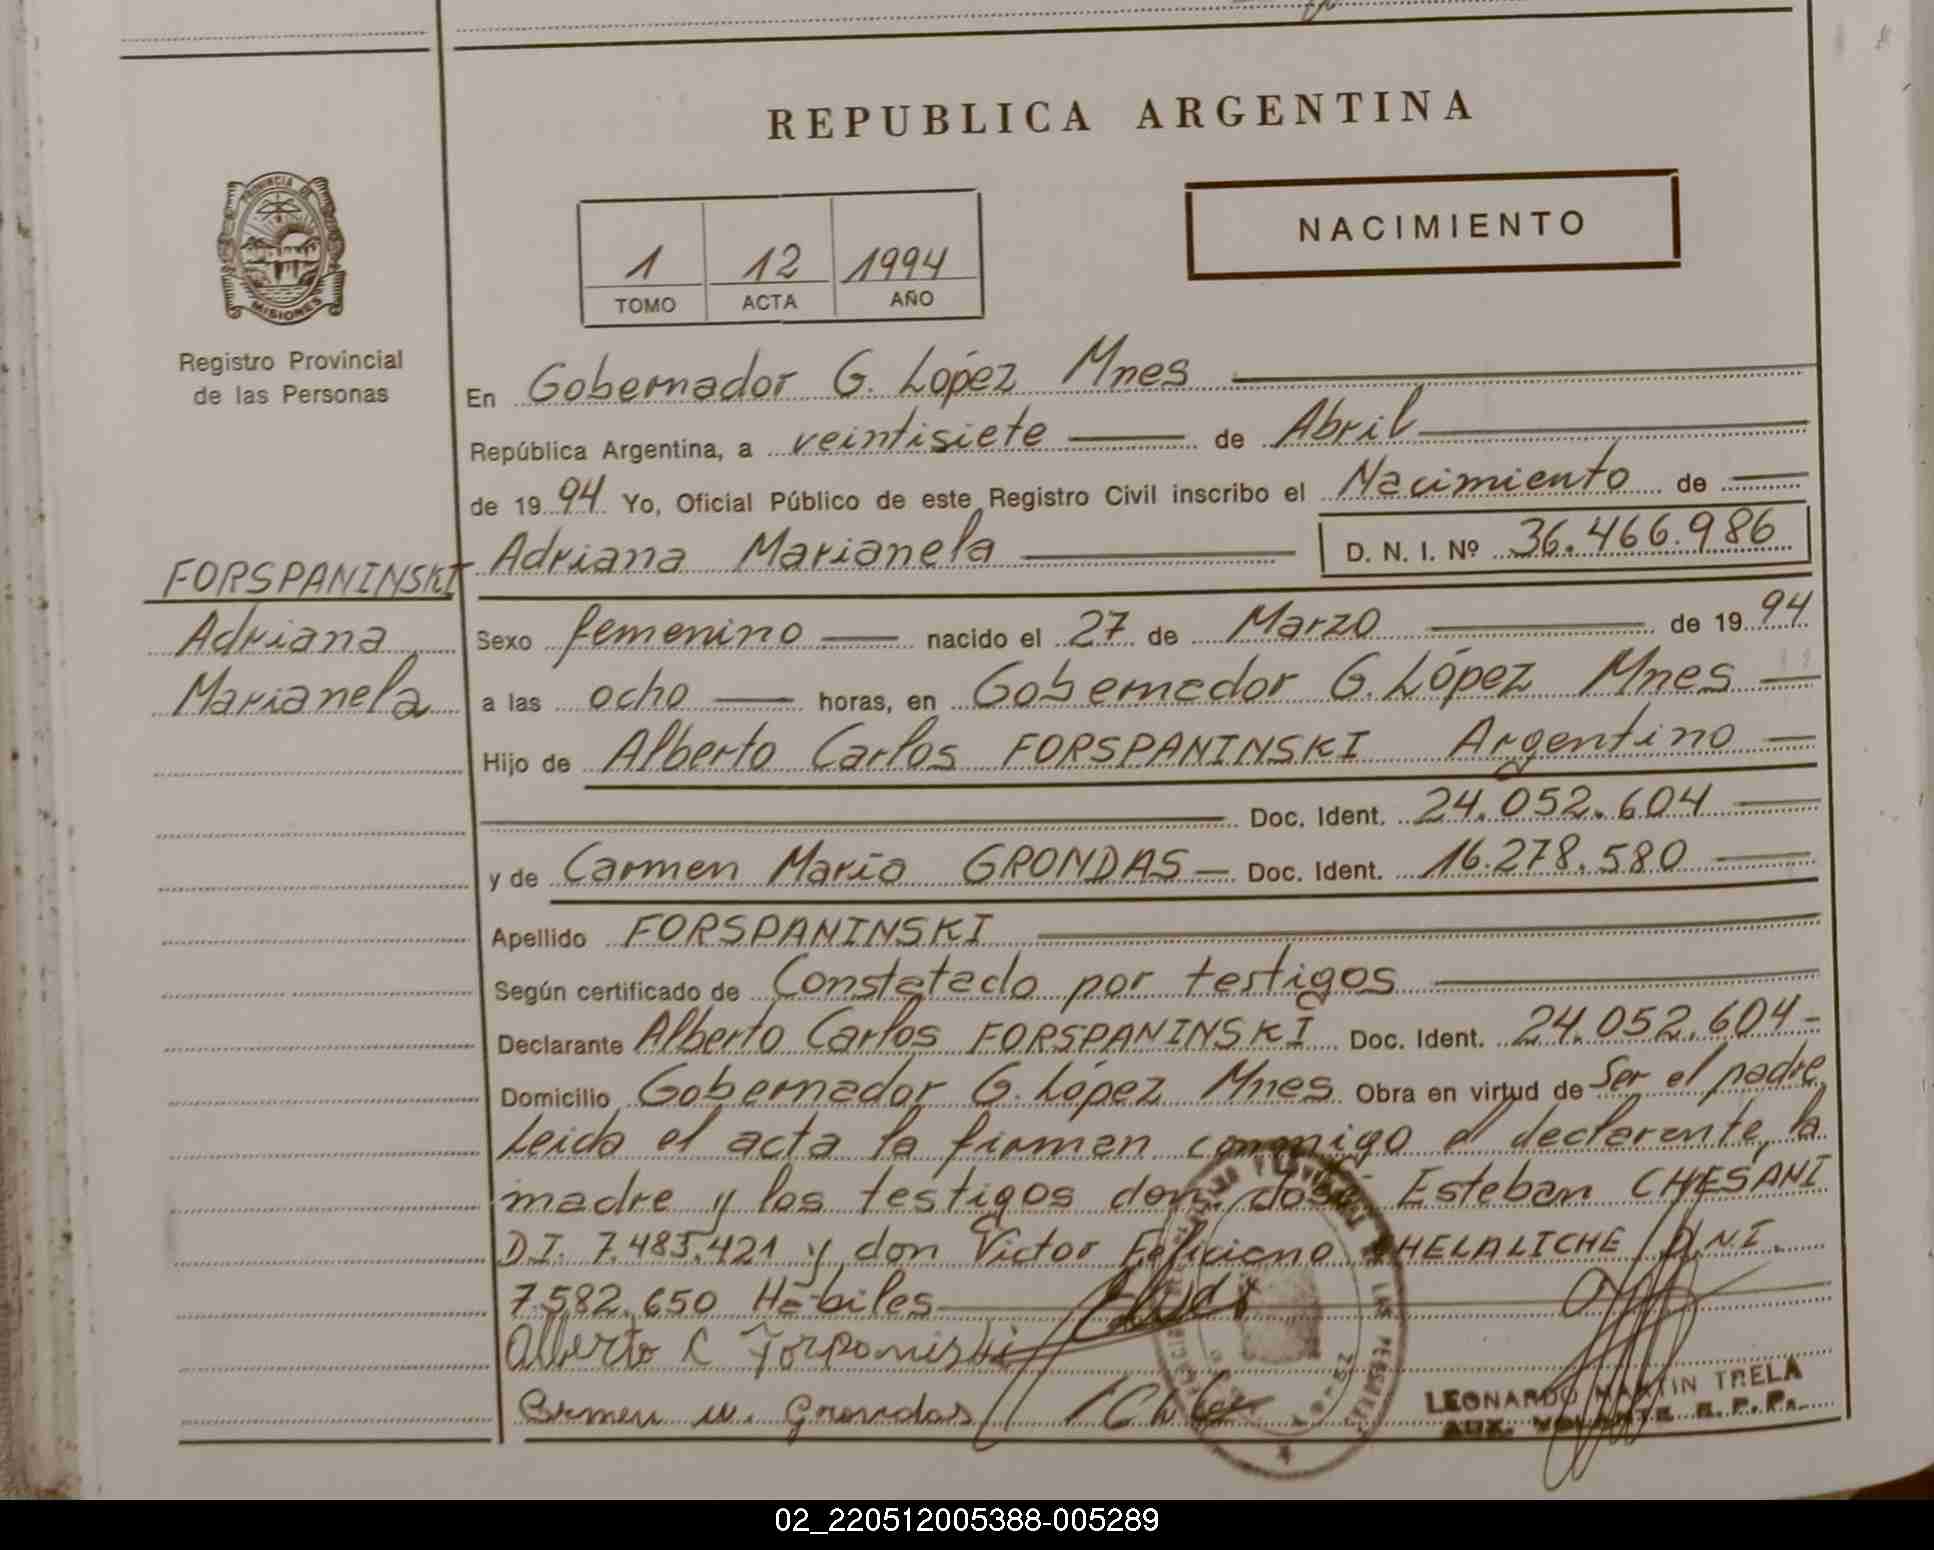 REPUBLICA ARGENTINA
PROVINCIA DE
MISIONES
Registro Provincial
de las Personas
NACIMIENTO
1 12 1994
TOMO ACTA AÑO
En Gobernador G. López Mnes
República Argentina, a veintisiete de Abril
de 1994 Yo, Oficial Público de este Registro Civil inscribo el Nacimiento de
Adriana Marianela D. N. I. Nº 36.466.986
FORSPANINSKI
Adriana
Marianela
Sexo femenino nacido el 27 de Marzo de 1994
a las ocho horas, en Gobernador G. López Mnes
Hijo de Alberto Carlos FORSPANINSKI Argentino
Doc. Ident. 24.052.604
y de Carmen María GRONDAS Doc. Ident. 16.278.580
Apellido FORSPANINSKI
Según certificado de Constatado por testigos
Declarante Alberto Carlos FORSPANINSKI Doc. Ident. 24.052.604
Domicilio Gobernador G. López Mnes Obra en virtud de Ser el padre
Leida el acta la firman conmigo el declarente, la
madre y los testigos don José Esteban CHESANI
D.I. 7.485.421 y don Victor Feliciano CHELALICHE D.N.I.
7.582.650 Hábiles
Alberto C
Carmen M. Grondas
LEONARDO MARTIN TRELA
AUX. VOLANTE R. P. Ps.
02_220512005388-005289